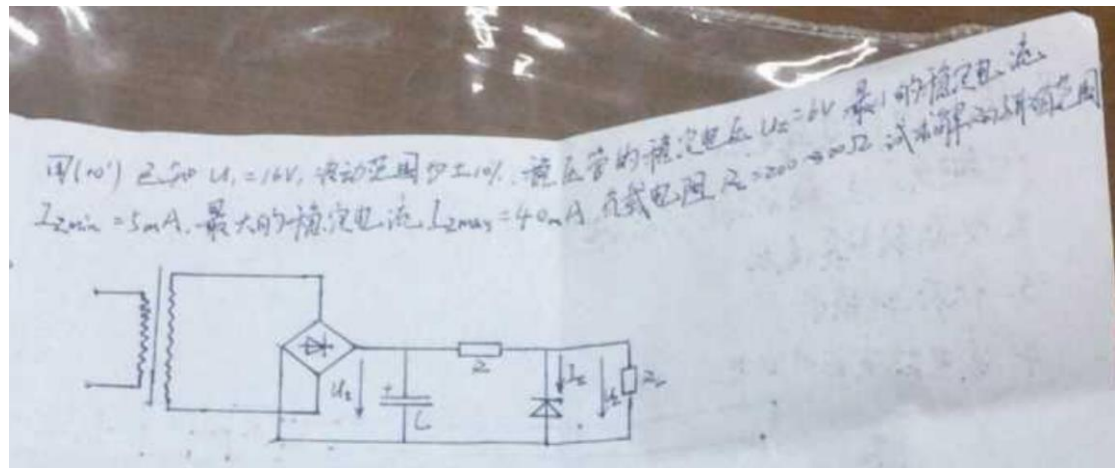 四(10') 已知 U₁=16V, 波动范围为±10%. 稳压管的稳定电压 Uz=6V 最小的稳定电流
Izmin=5mA. 最大的稳定电流 Izmax=40mA 负载电阻 RL=200~300Ω 试求解 的 范围
+
C
Iz